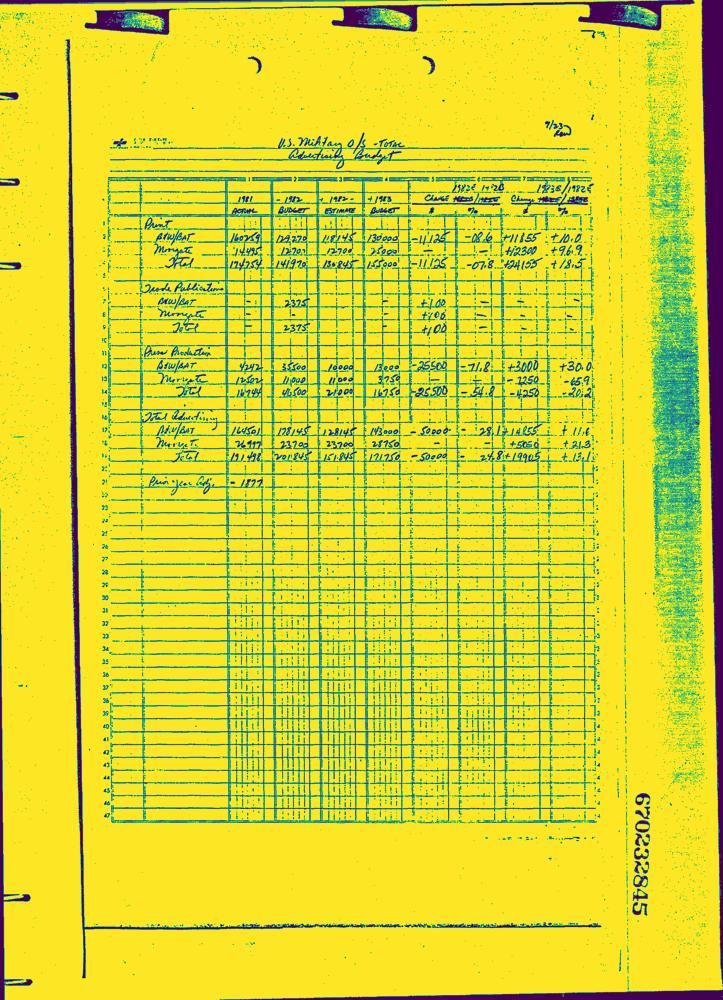 9/23
U.S. Military O/S - Total
Advertising Budget
1 2 3 4 5 6 7 8
1982E 1983E/1982E
1981 - 1982 - - 1982 - - 1983 Change Change
ACTUAL BUDGET ESTIMATE BUDGET $ % $ %
Print
B&W/BAT 160259 129,270 118145 130000 -11,125 -08.6 +11855 +10.0
14495 12701 12700 25000 — — +12300 +96.9
Total 174754 141970 130845 155000 -11125 -07.8 +24155 +18.5
Trade Publications
B&W/BAT - 2375 - - +100 - - -
- - - - +100 - - -
Total - 2375 - - +100 - - -
Press Production
B&W/BAT 4242 35500 10000 13000 -25500 -71.8 +3000 +30.0
12502 11000 11000 3750 — — -7250 -65.9
Total 16744 46500 21000 16750 -25500 -54.8 -4250 -20.2
Total Advertising
B&W/BAT 164501 178145 128145 143000 -50000 -28.1 +14855 +11.6
26997 23700 23700 28750 — — +5050 +21.3
Total 191498 201845 151845 171750 -50000 -24.8 +19905 +13.1
Prior year Adj. - 1877
670232845